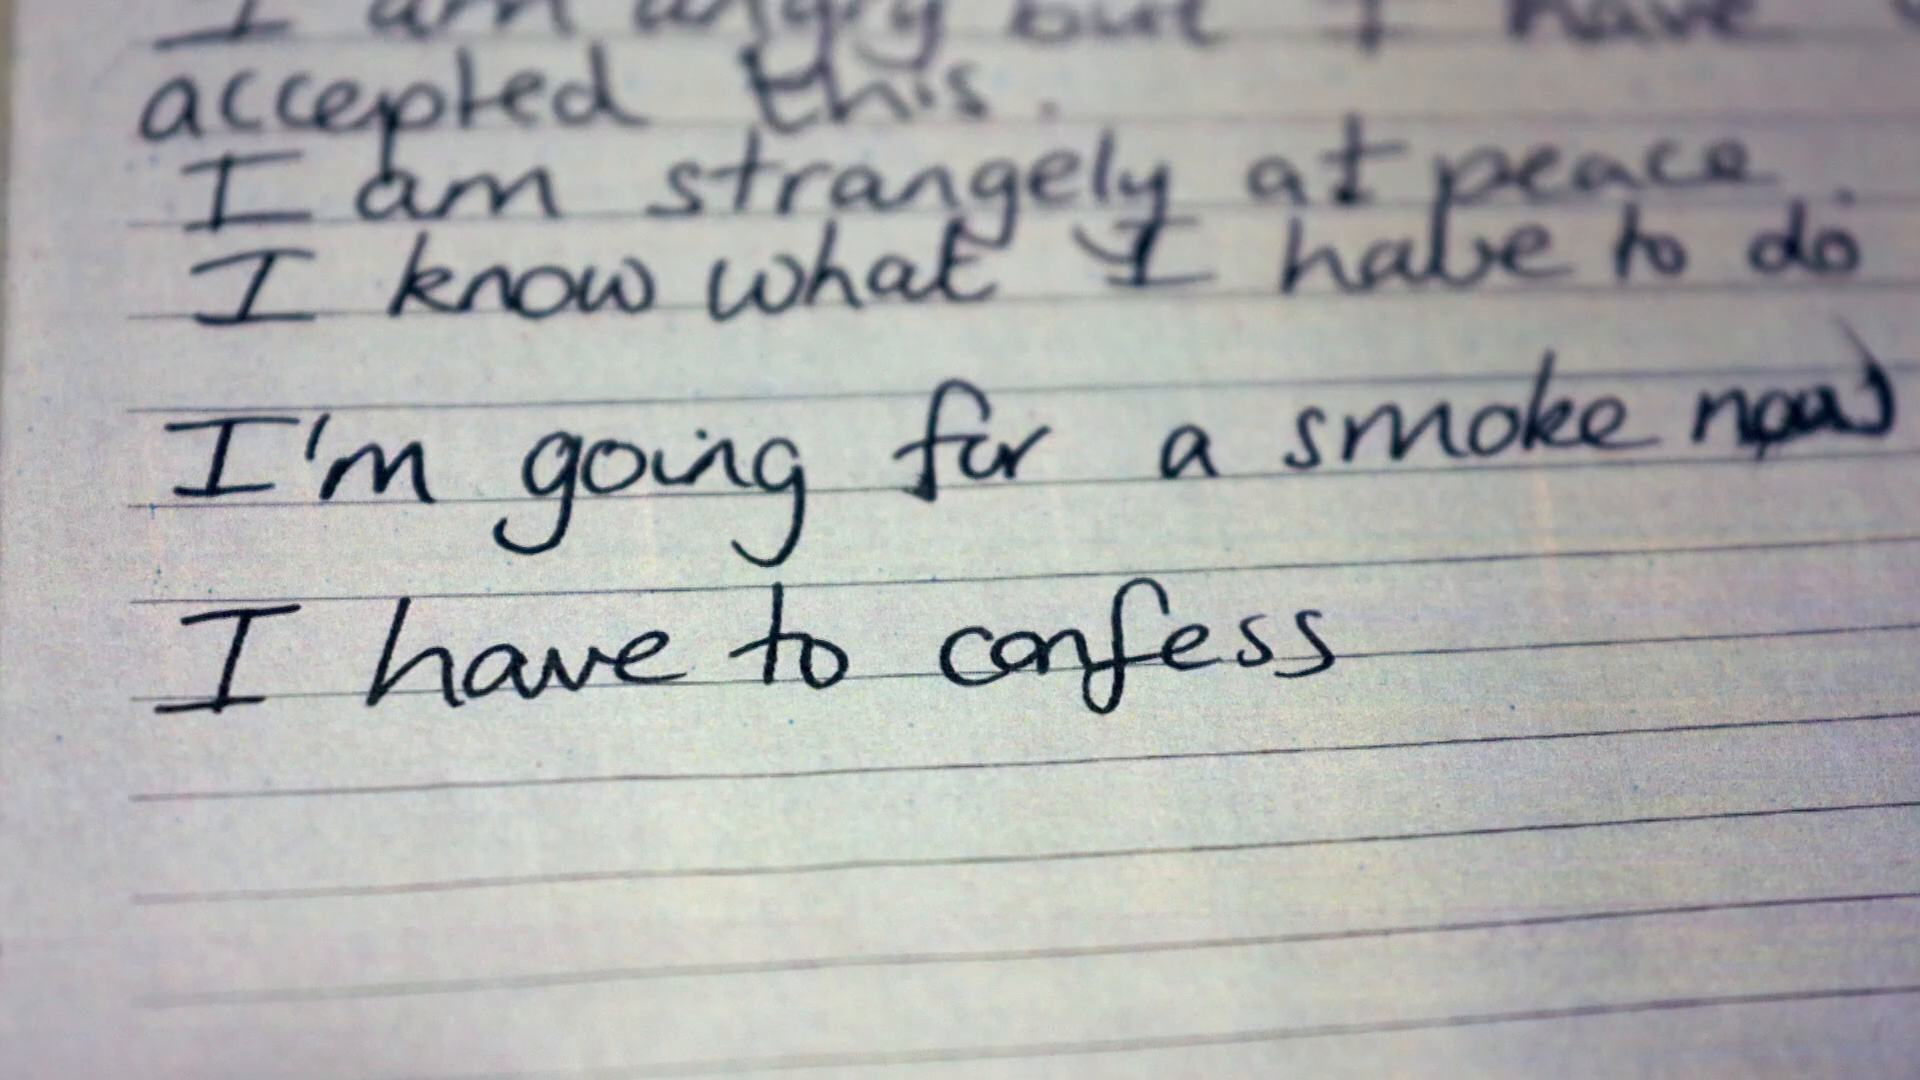 I am angry but I have
accepted this.
I am strangely at peace.
I know what I have to do
I'm going for a smoke now
I have to confess